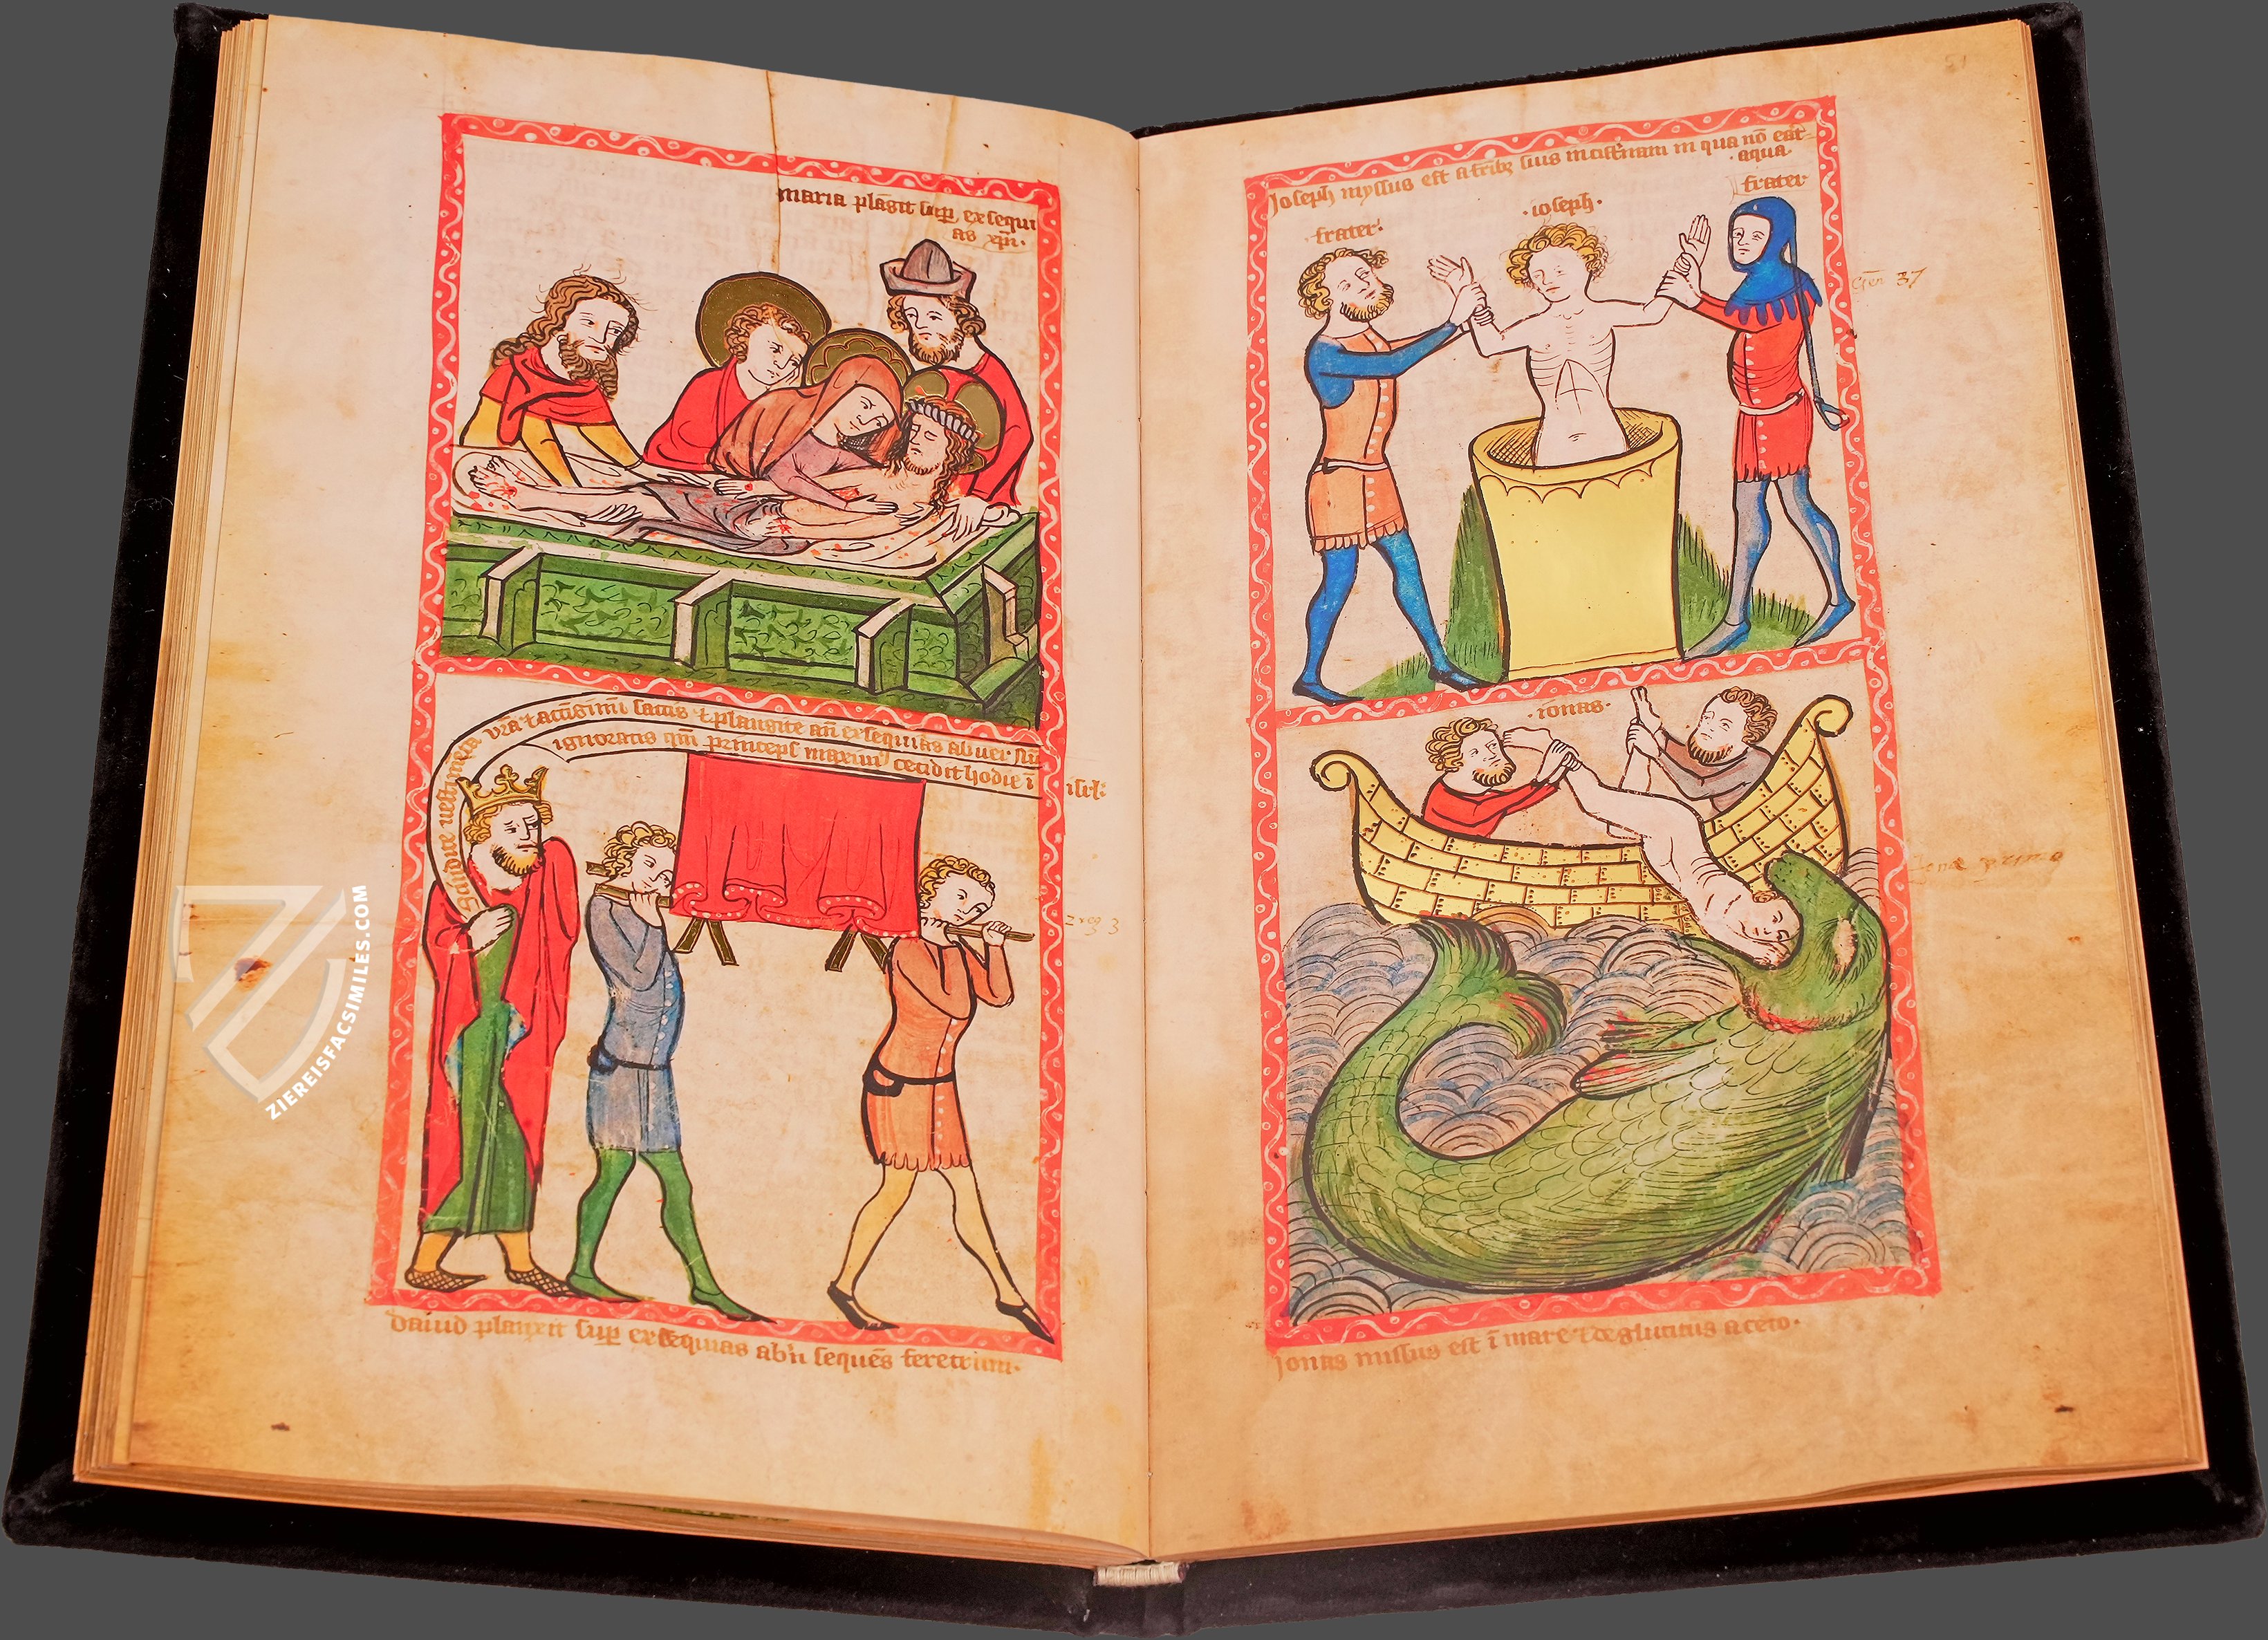 maria plāgit suꝑ exsequi
as xp̄i.
Scindite vestimenta vr̄a ⁊ accīgimī saccis ⁊ plangite an̄ exsequias abner nū
ignoratis qm̄ princeps maximꝰ cecidit hodie ī isrl:
2 reg 3
dauid planxit suꝑ exsequias abn̄ sequēs feretrum.
51
Joseph myssus est a frībꝫ suis in cistͬnam in qua nō erat
aqua
frater.
.ioseph.
frater
Gen 37
.ionas.
Jonæ primo
Jonas missus est ī mare ⁊ deglutitus a ceto.
ZIEREISFACSIMILES.COM